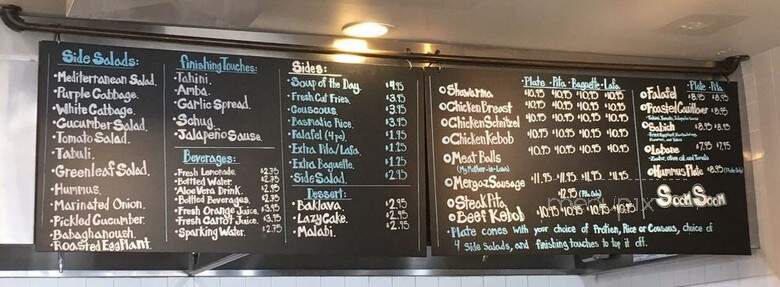 Side Salads:
Mediterranean Salad.
Purple Cabbage.
White Cabbage.
Cucumber Salad
Tomato Salad.
Tabuli.
Greenleaf Salad.
Hummus.
Marinated Onion.
Pickled Cucumber.
Babaghanoush.
Roasted EggPlant.
Finishing Touches:
Tahini.
Amba.
Garlic Spread.
Schug.
Jalapeño Sause.
Beverages:
Fresh Lemonade. $2.75
Bottled Water. $2.75
Aloe Vera Drink. $2.95
Bottled Beverages.
Fresh Orange Juice.
Fresh Carrot Juice.
Sparking Water. $2.75
Sides:
Soup of the Day. $4.95
Fresh Cut Fries. $3.95
Couscous $3.95
Basmatic Rice. $3.95
Falafel (4pc) $1.95
Extra Pita/Lafa. $1.25
Extra Baguette. $1.25
Side Salad. $2.95
Dessert:
Baklava. $2.95
Lazy Cake. $2.95
Malabi. $2.95
Plate Pita Baguette Lafa
Shawarma $10.95 $10.95 $10.95 $10.95
Chicken Breast $10.95 $10.95 $10.95 $10.95
Chicken Schnitzel $10.95 $10.95 $10.95 $10.95
Chicken Kebob $10.95 $10.95 $10.95 $10.95
Meat Balls
(My Mother-in-Law)
Mergaz Sausage $11.95 $11.95 $11.95
Steak Pita
Beef Kebob
Plate Pita
Falafel $8.95 $8.95
Roasted Cauliflower $8.95
Sabich $8.95 $8.95
Labane $7.95 $7.95
Zaatar, olive oil, and Tomato
Hummus Plate $8.95
Soon Soon
menupix
Plate comes with your choice of Protien, Rice or Cousous, choice of
4 Side Salads, and finishing touches to top it off.